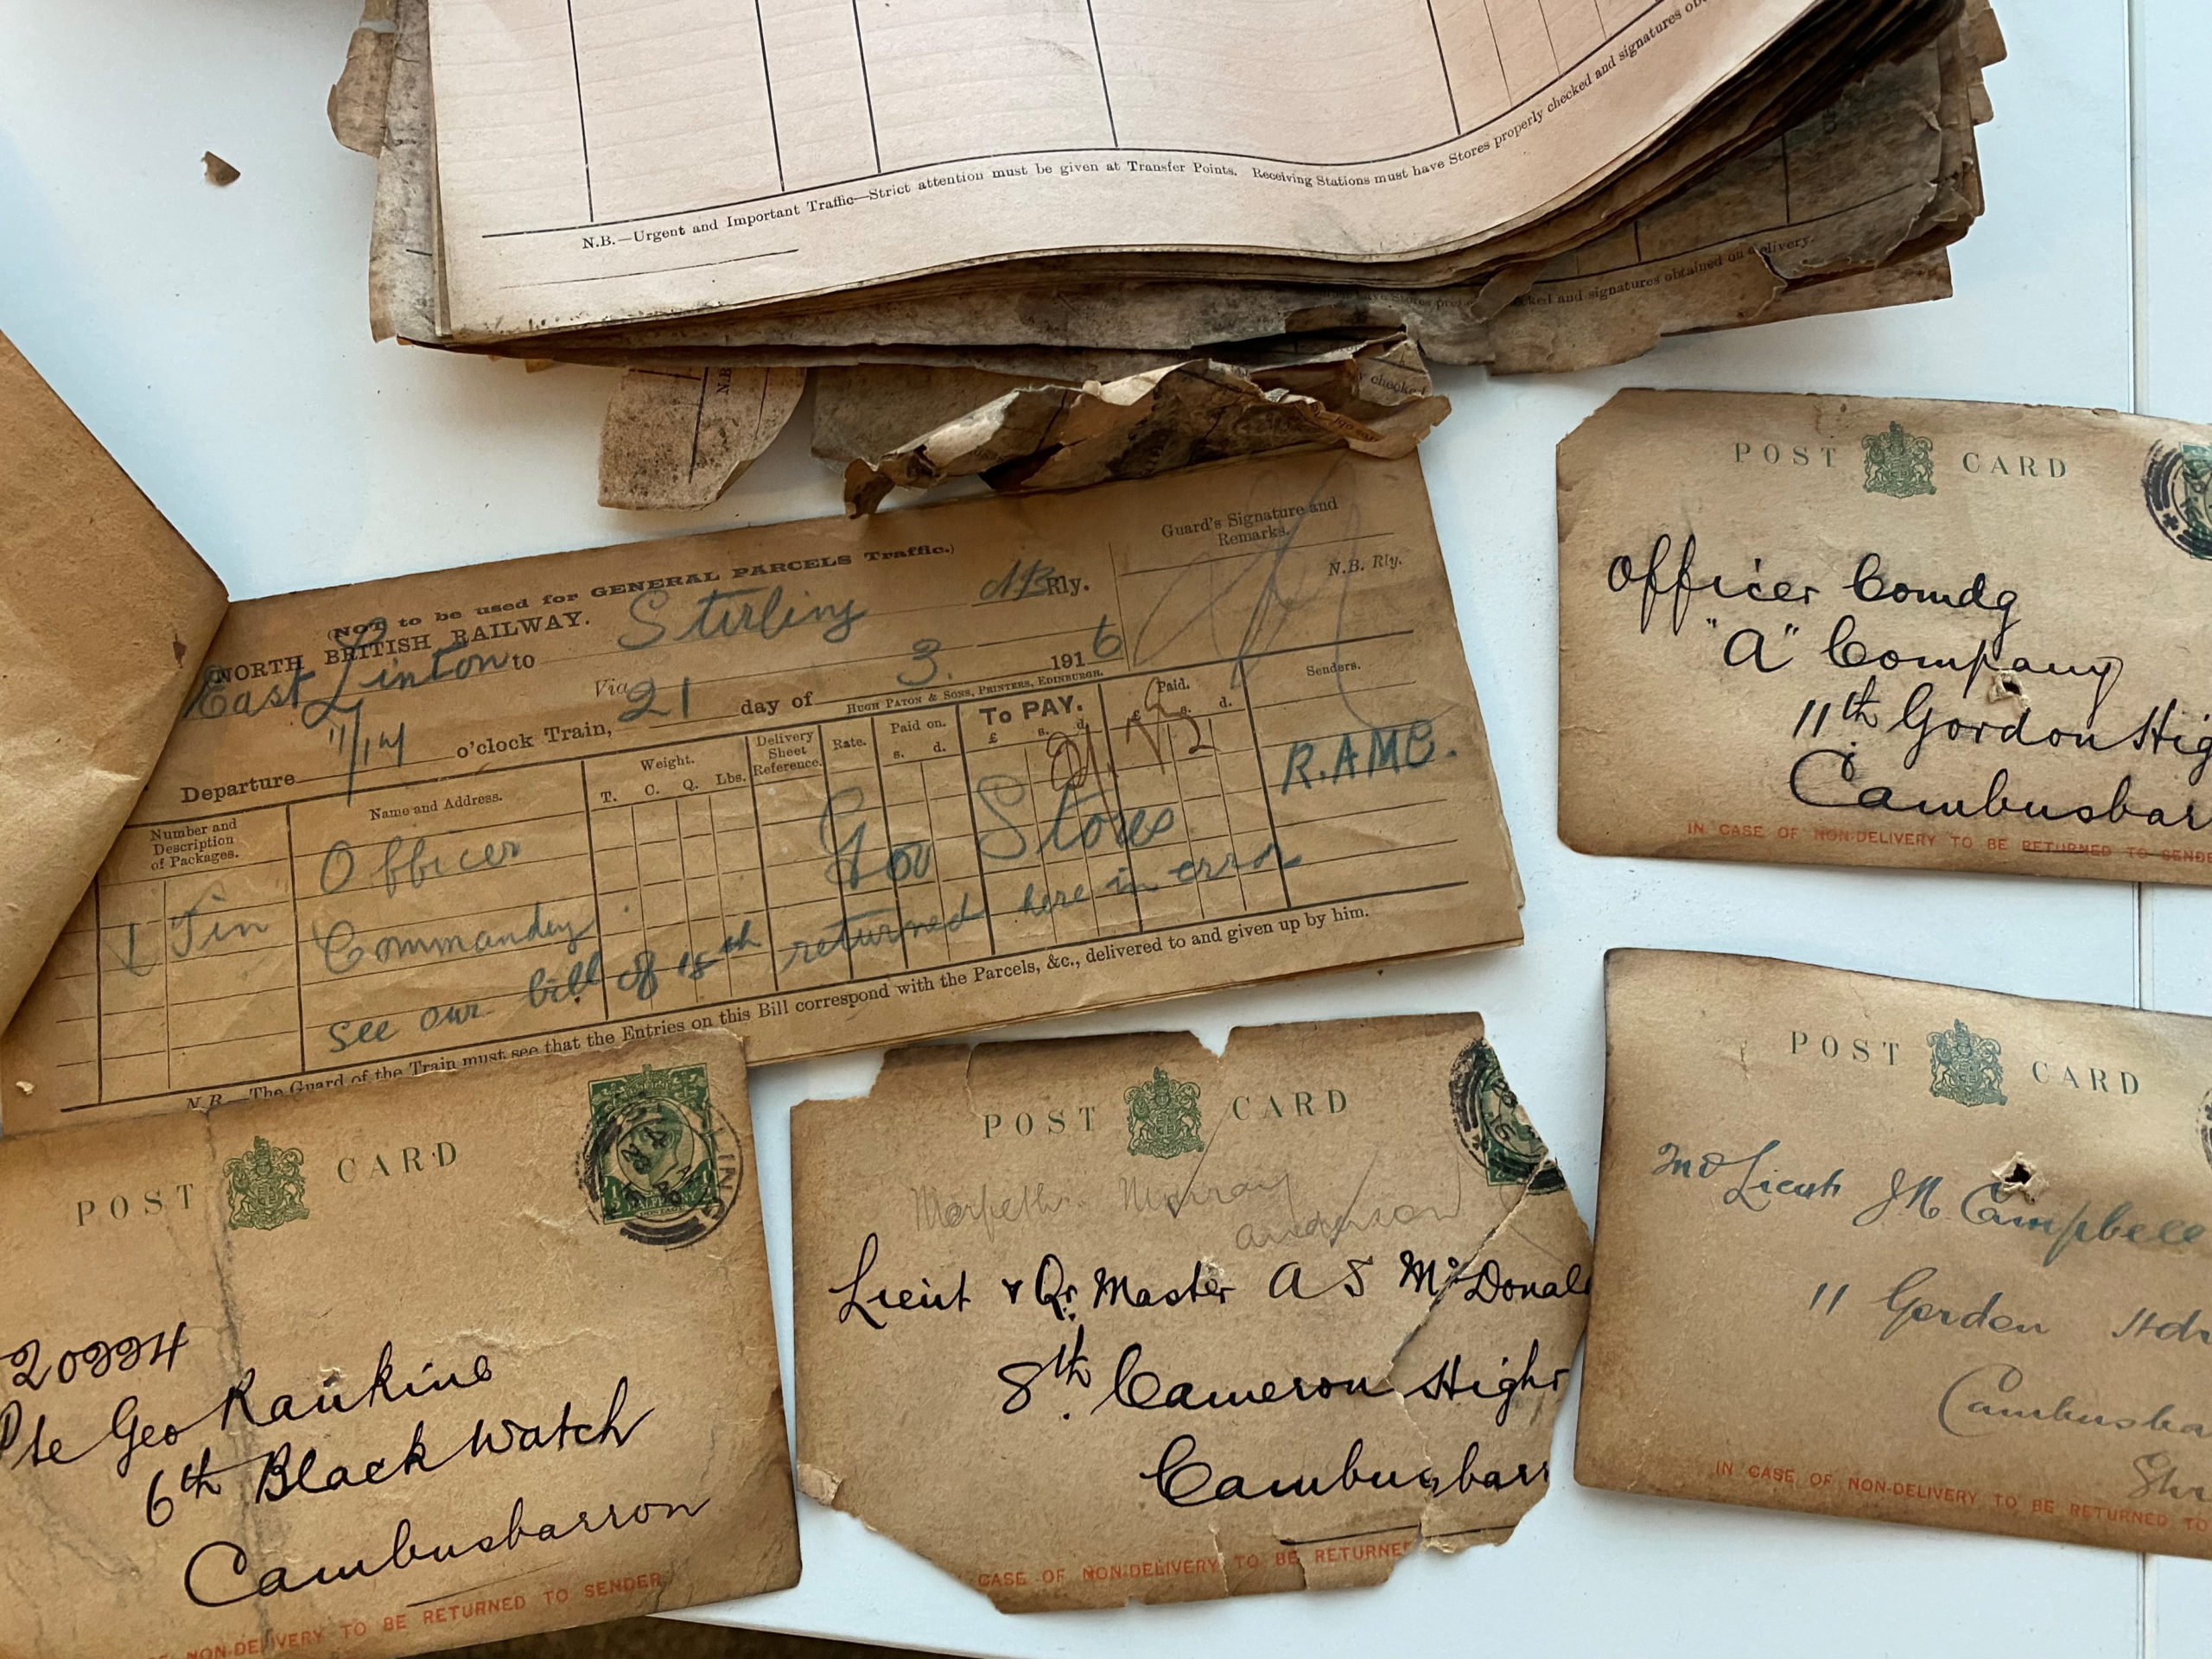 N.B.—Urgent and Important Traffic—Strict attention must be given at Transfer Points. Receiving Stations must have Stores properly checked and signatures
ked and signatures obtained on delivery.
N.B.
(NOT to be used for GENERAL PARCELS Traffic.)
NORTH BRITISH RAILWAY.
East Linton to Stirling NB Rly.
Via
Departure o'clock Train, 21 day of 3. 1916
HUGH PATON & SONS, PRINTERS, EDINBURGH.
Guard's Signature and
Remarks.
N.B. Rly.
Number and
Description
of Packages.
Name and Address.
Weight.
T. C. Q. Lbs.
Delivery
Sheet
Reference.
Rate.
Paid on.
s. d.
To PAY.
£ s. d.
Paid.
£ s. d.
Senders.
1 Tin
Officer
Commandg
Gov Stores
R.A.M.C.
see our bill of 18th returned here in error
N.B.—The Guard of the Train must see that the Entries on this Bill correspond with the Parcels, &c., delivered to and given up by him.
POST CARD
Officer Comdg
"A" Company
11th Gordon Hig
Cambusbar
IN CASE OF NON-DELIVERY TO BE RETURNED TO SENDE
POST CARD
20994
Pte Geo Rankine
6th Black Watch
Cambusbarron
NON-DELIVERY TO BE RETURNED TO SENDER
POST CARD
Morpeth Murray
Anderson
Lieut & Qr Master A S McDonal
8th Cameron Highr
Cambusbarr
CASE OF NON-DELIVERY TO BE RETURNE
POST CARD
Lieut J M Campbell
11 Gordon Hdr
Cambusba
IN CASE OF NON-DELIVERY TO BE RETURNED TO